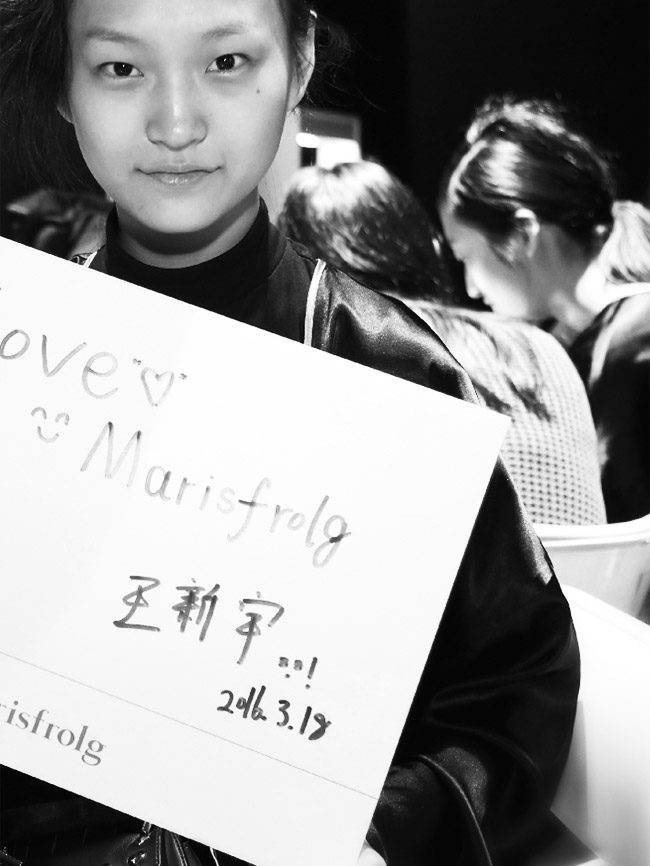 Love ♡
Marisfrolg
王新宇..!
2016.3.18
risfrolg